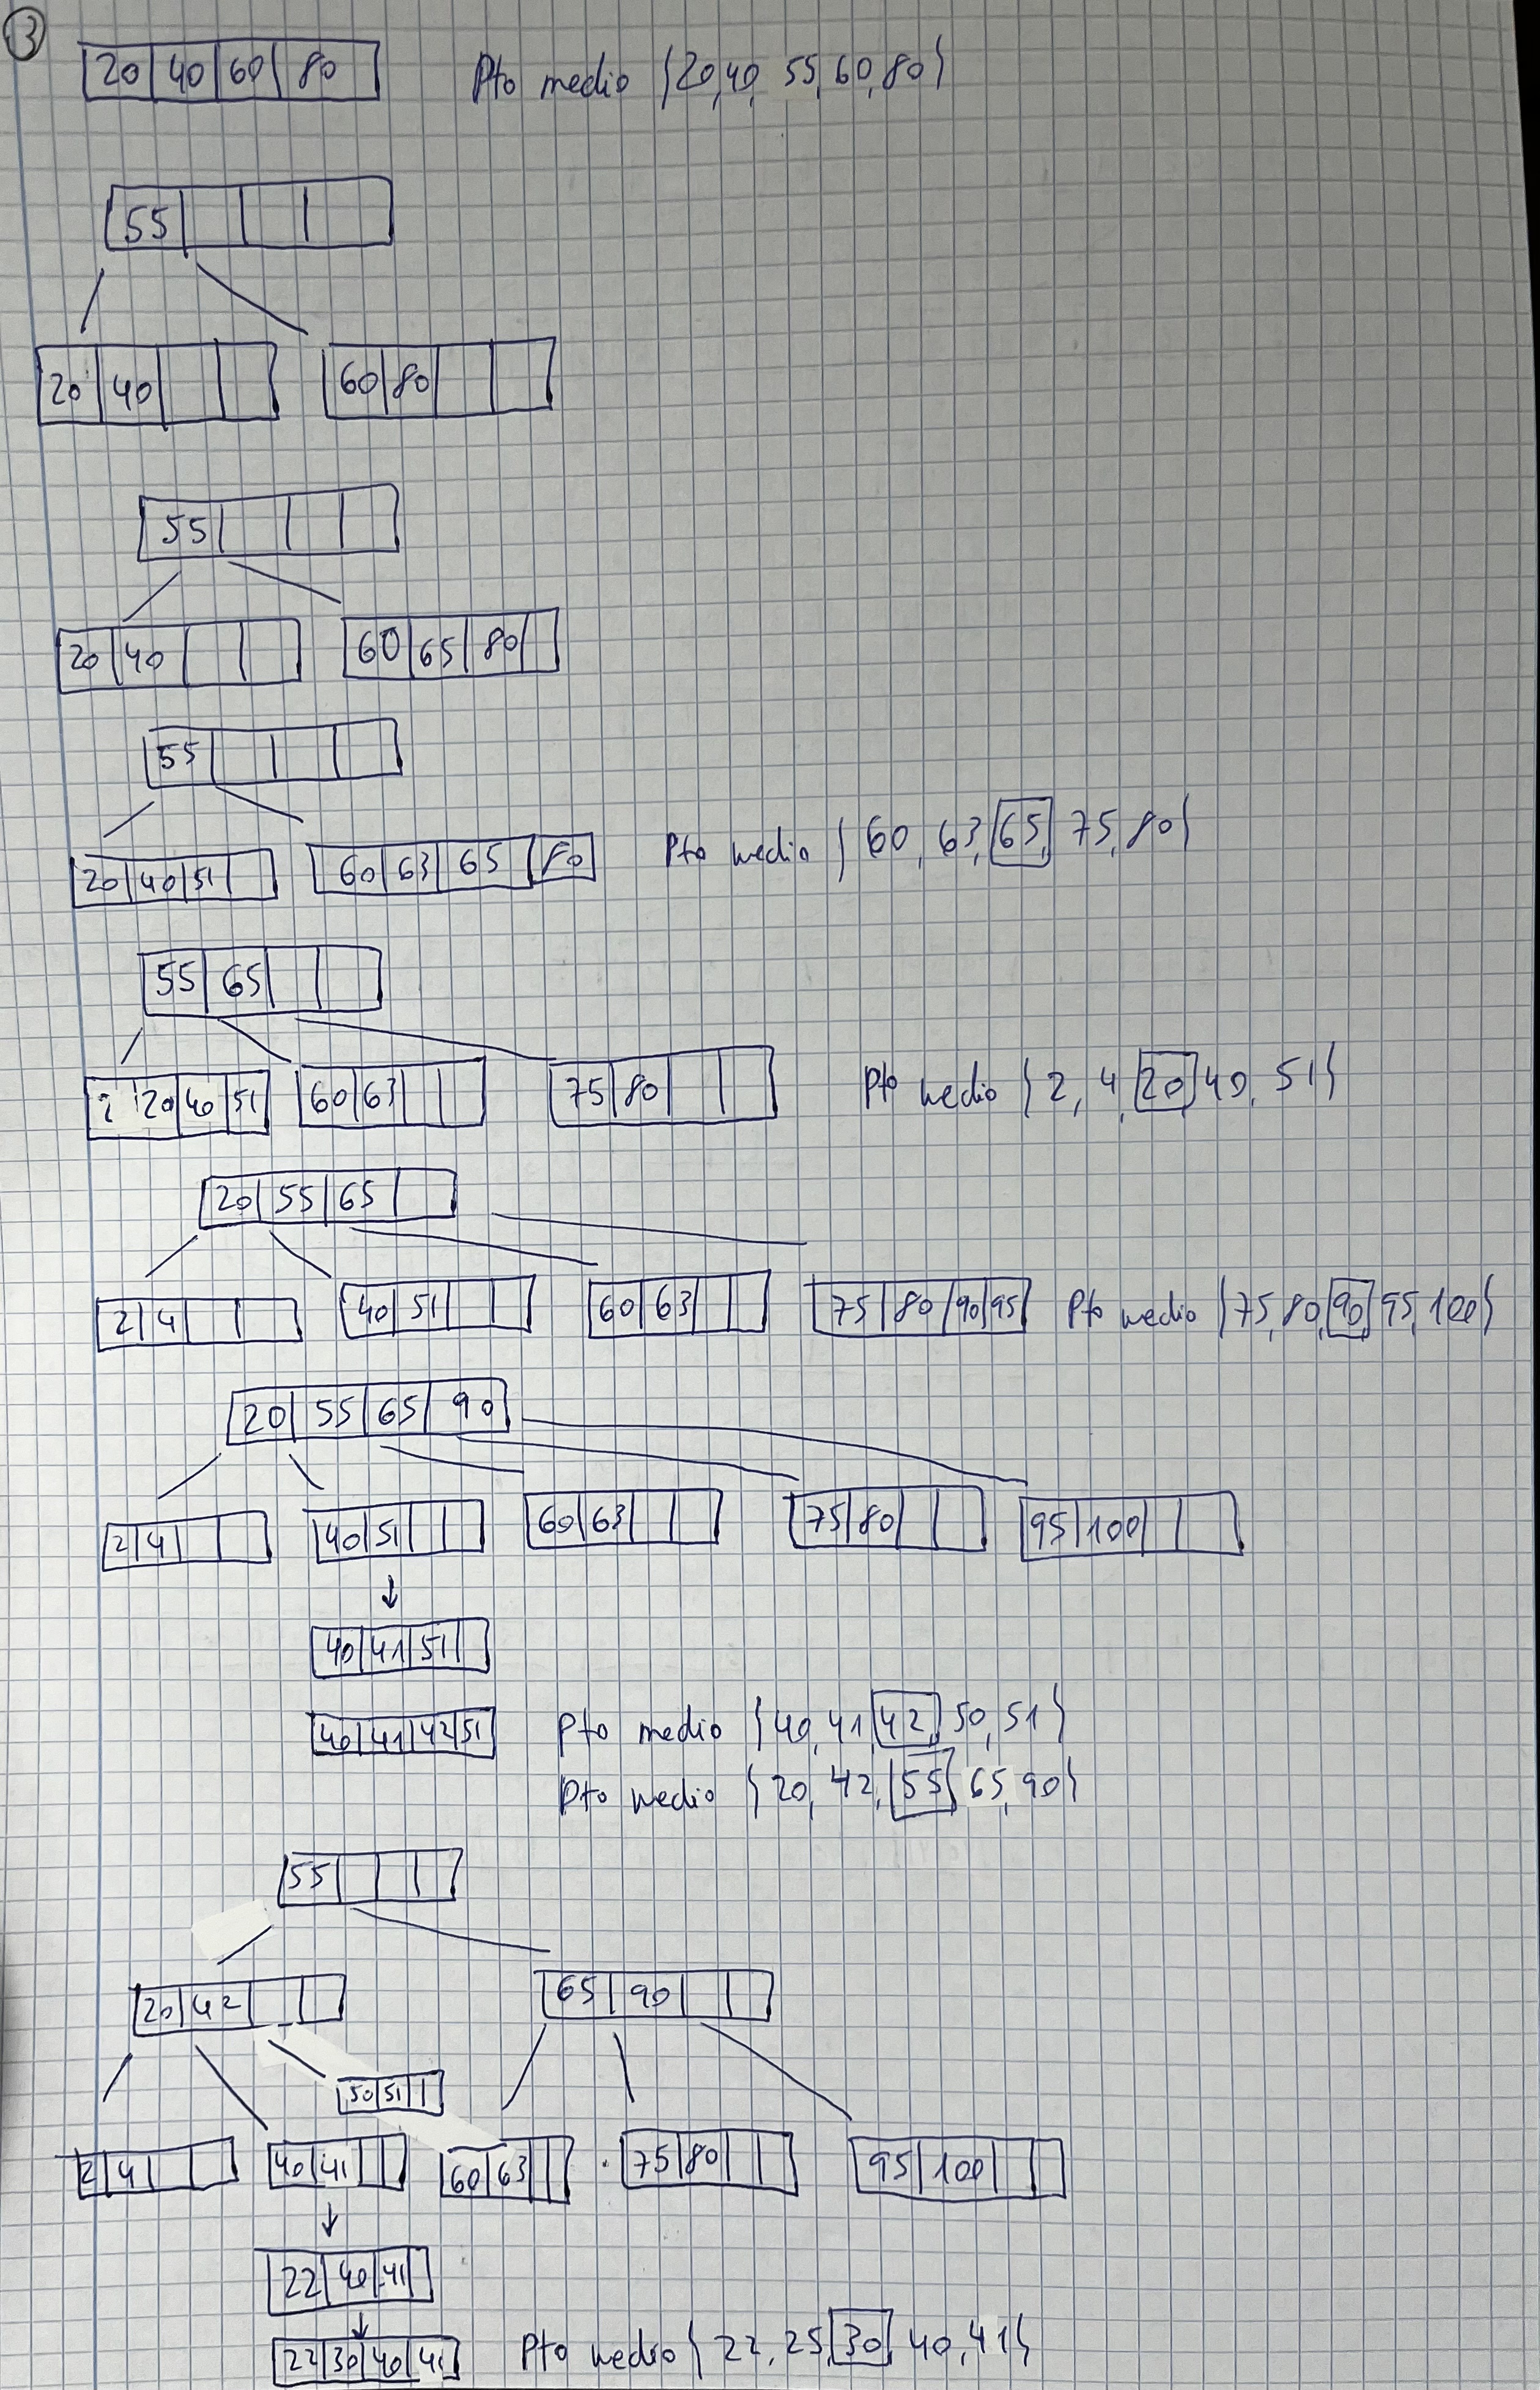 3
20 40 60 80 Pto medio {20, 40, 55, 60, 80}
55
20 40 60 80
55
20 40 60 65 80
55
20 40 51 60 63 65 80 Pto medio {60, 63, 65, 75, 80}
55 65
2 20 40 51 60 63 75 80 Pto medio {2, 4, 20, 40, 51}
20 55 65
2 4 40 51 60 63 75 80 90 95 Pto medio {75, 80, 90, 95, 100}
20 55 65 90
2 4 40 51 60 63 75 80 95 100
↓
40 41 51
40 41 42 51 Pto medio {40, 41, 42, 50, 51}
Pto medio {20, 42, 55, 65, 90}
55
20 42 65 90
50 51
2 4 40 41 60 63 75 80 95 100
↓
22 40 41
↓
22 30 40 41 Pto medio {22, 25, 30, 40, 41}